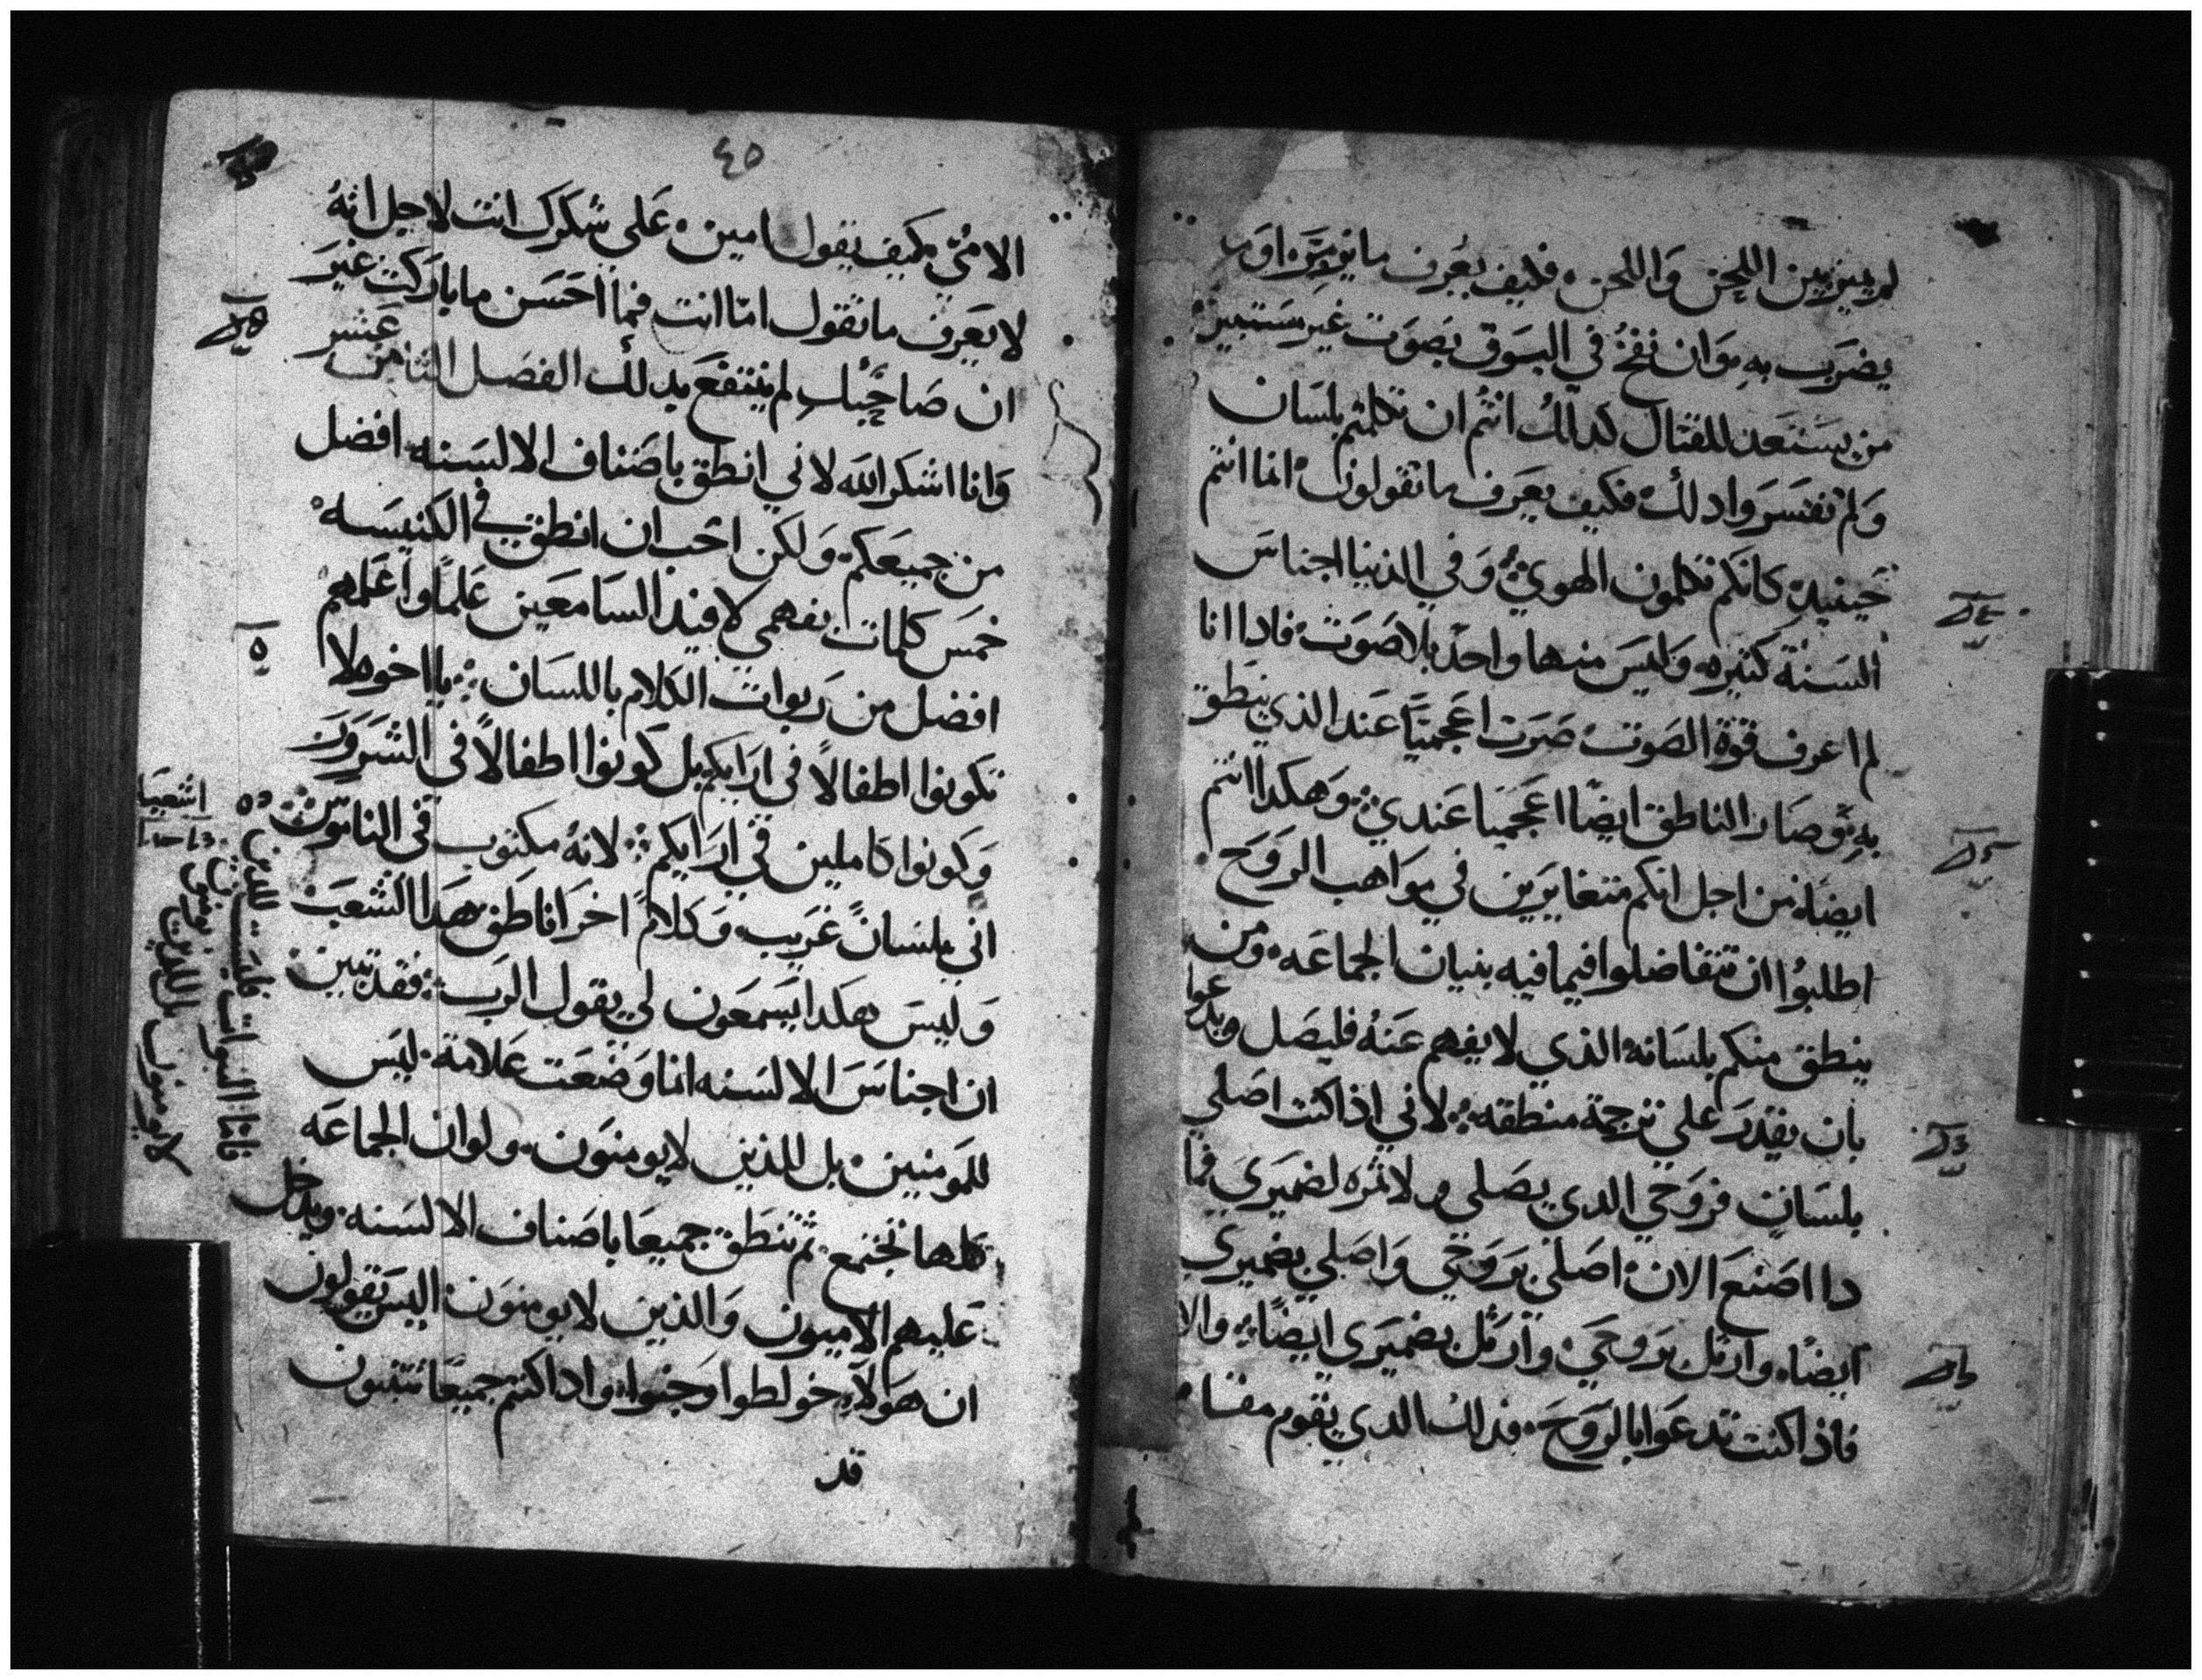 لم يميز بين اللحن واللحن فكيف يعرف ما يزمر او
يضرب به وان نفخ في البوق بصوت غير مستبين
من يستعد للقتال كدلك انتم ان تكلمتم بلسان
ولم تفسروا دلك فكيف يعرف ما تقولون انما انتم
حينيد كانكم تكلمون الهوي وفي الدنيا اجناس
السنة كثيره وليس منها واحد بلا صوت فادا انا
لم اعرف قوة الصوت صرت اعجميا عند الذي ينطق
به وصار الناطق ايضا اعجميا عندي وهكدا انتم
ايضا من اجل انكم متغايرين في مواهب الروح
اطلبوا ان تتفاضلوا فيما فيه بنيان الجماعه ومن
ينطق منكم بلسانه الذي لا يفهم عنه فليصل ويدعوا
بان يقدر علي ترجمة منطقه لاني اذا كنت اصلي
بلسان فروحي الدي يصلي ولا ثمره لضميري فما
دا اصنع الان اصلي بروحي واصلي بضميري
ايضا وارتل بروحي وارتل بضميري ايضا والا
فاذا كنت تدعوا بالروح فذلك الدي يقوم مقام
٤٥
الامي كيف يقول امين علي شكرك انت لاجل انه
لا يعرف ما تقول اما انت فما احسن ما باركت غير
ان صاحبك لم ينتفع بدلك الفصل الثامن عشر
وانا اشكر الله لاني انطق باصناف الالسنه افضل
من جميعكم ولكن احب ان انطق في الكنيسه
خمس كلمات بفهمي لافيد السامعين علما واعلمهم
افضل من ربوات الكلام باللسان يا اخوه لا
تكونوا اطفالا في ارايكم بل كونوا اطفالا في الشرور
وكونوا كاملين في ارايكم لانه مكتوب في الناموس
اني بلسان غريب وكلام اخر اناطق هدا الشعب
وليس هكدا يسمعون لي يقول الرب فقد تبين
ان اجناس الالسنه انما وضعت علامة ليس
للمومنين بل للذين لا يومنون ولو ان الجماعه
كلها تجتمع ثم تنطق جميعا باصناف الالسنه ويدخل
عليهم الاميون والذين لا يومنون اليس يقولون
ان هولاء خولطوا وجنوا وادا كنتم جميعا تتنبون
قد
اشعيا
فاما النبوات فليست للدين
لا يومنون بل للذين يومنون